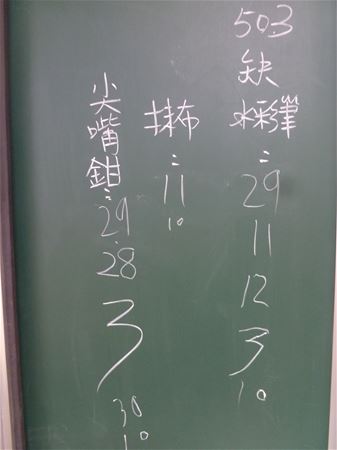 503
缺
水彩筆：
29
11
12
3
10
抹布：
11
10
尖嘴鉗：
29
28
3
30
10